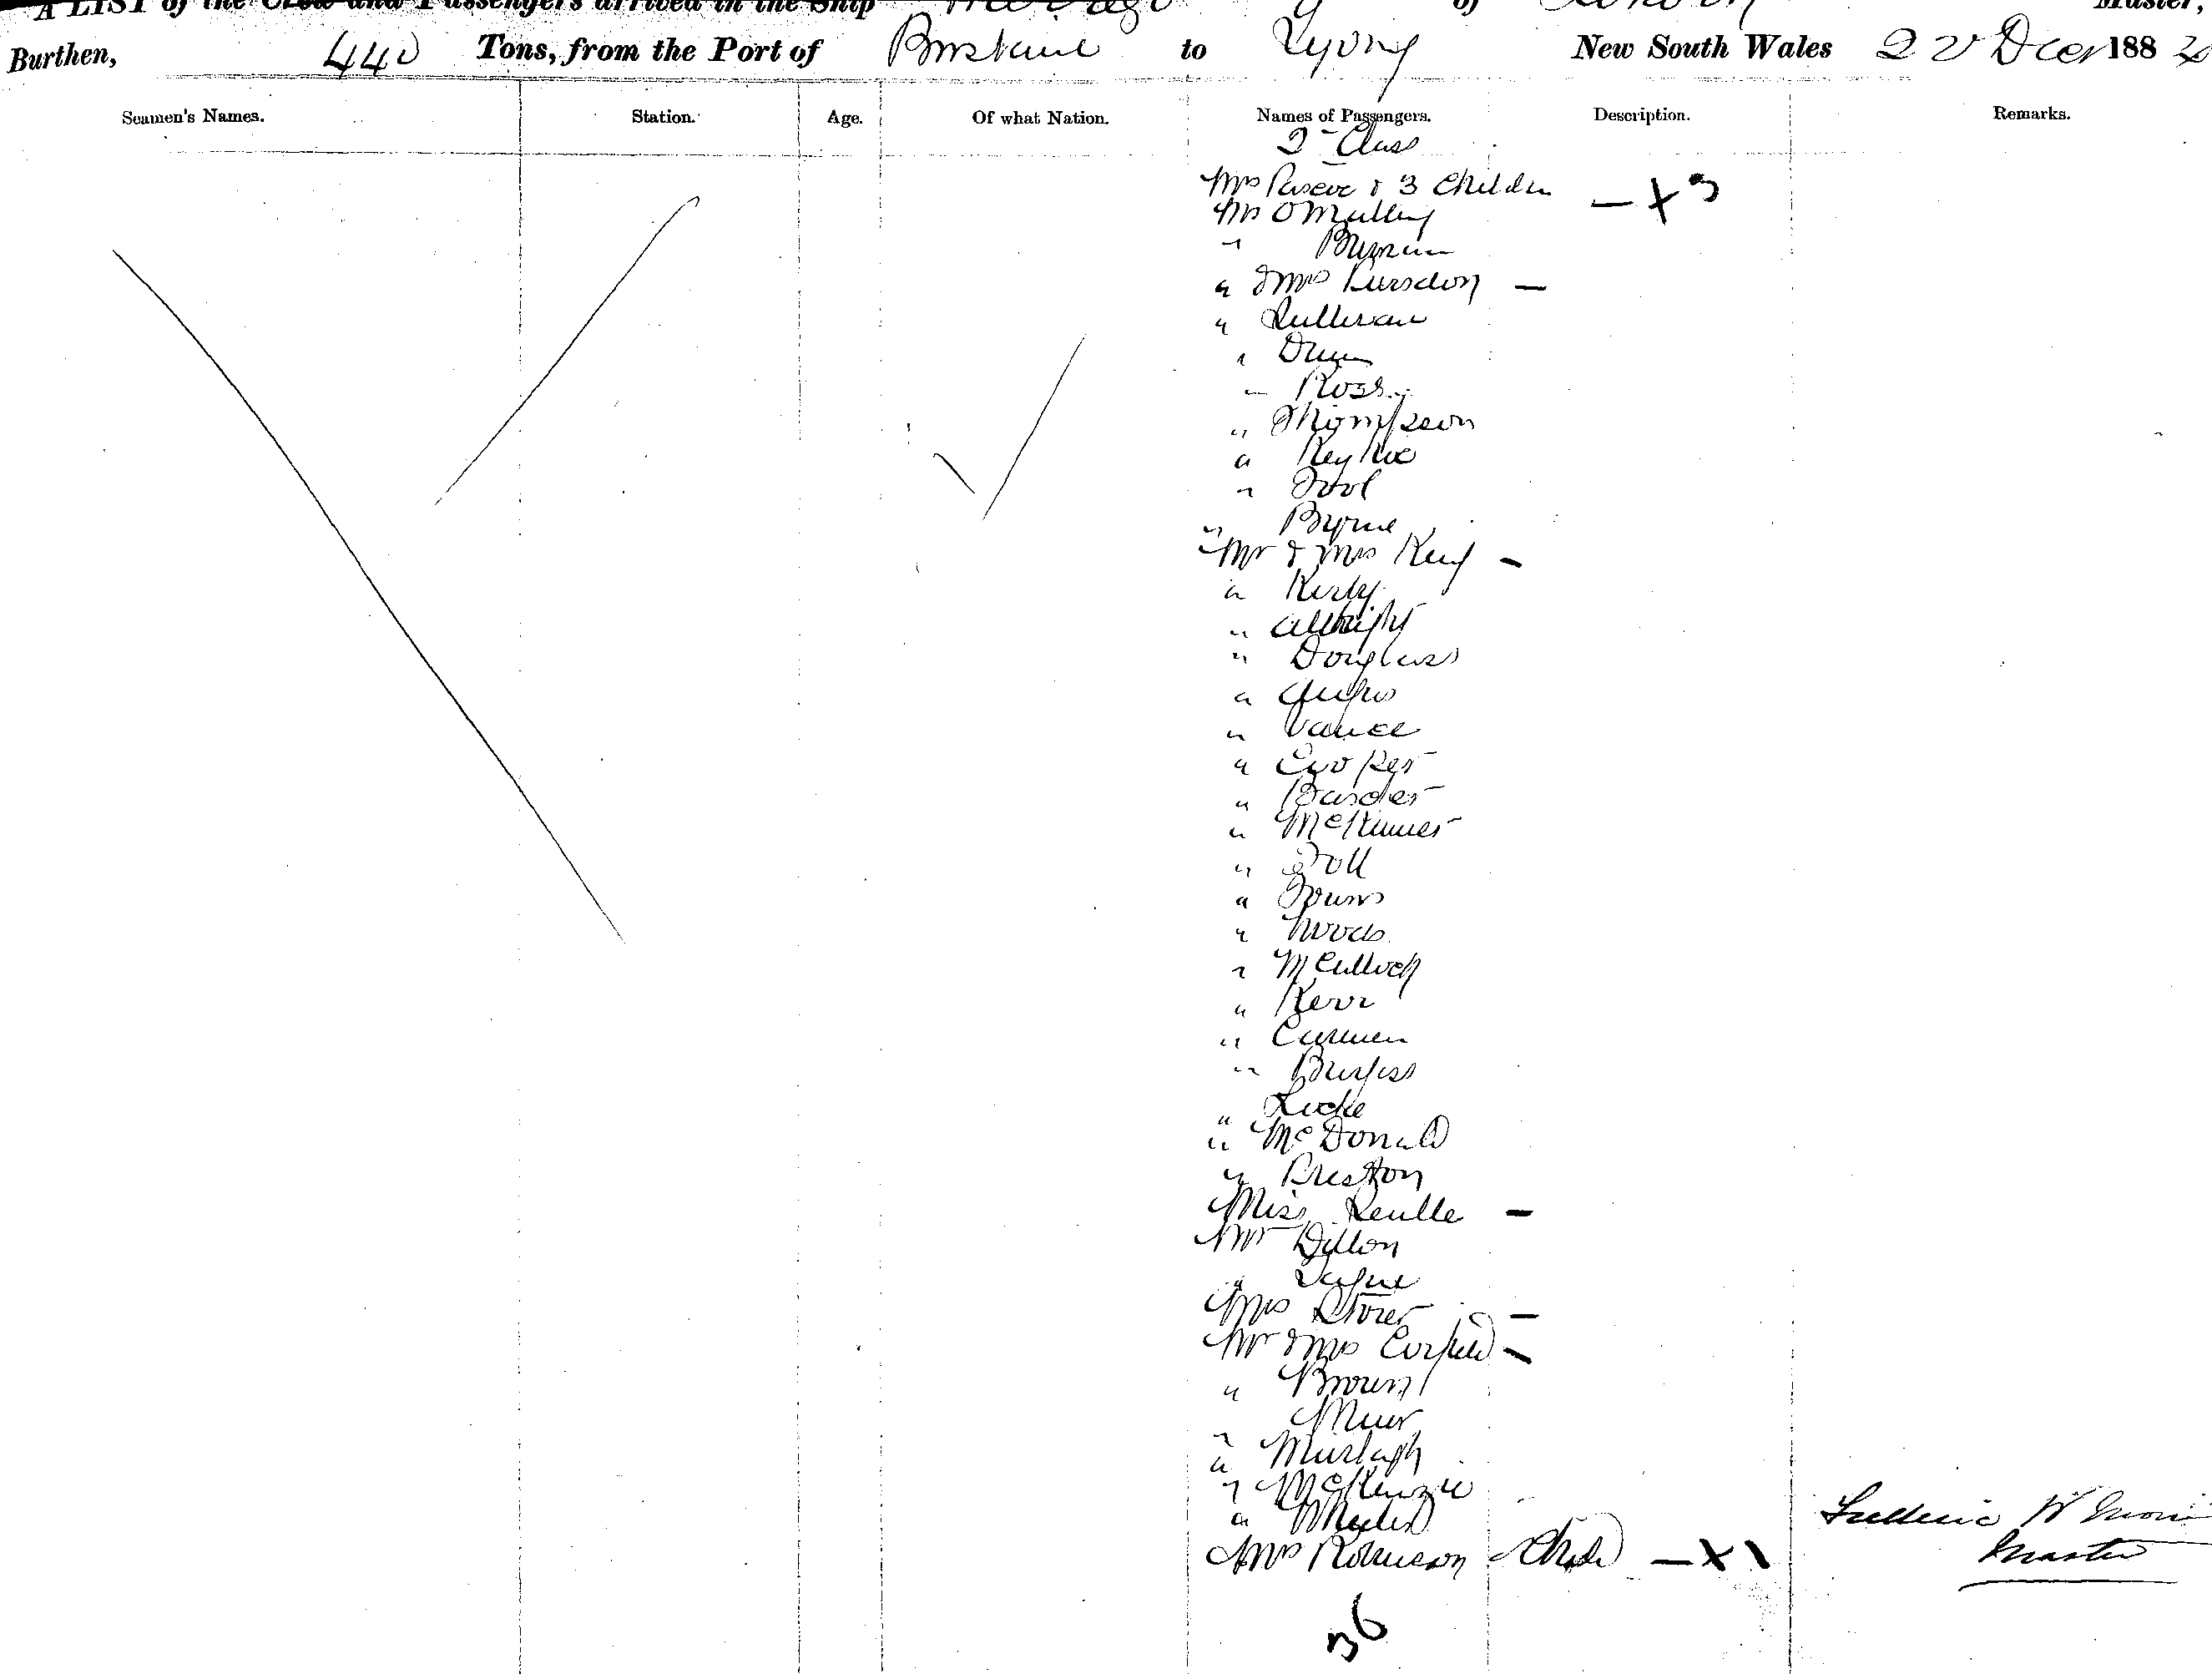 A LIST of the Crew and Passengers arrived in the Ship of Master,
Burthen, 440 Tons, from the Port of Brisbane to Sydney New South Wales 22 Decr 1882
Seamen's Names. Station. Age. Of what Nation. Names of Passengers. Description. Remarks.
2 Class
Mrs & 3 Children — x 3
Mr O'Malley
"
" & Mrs Lunsdon —
" Sullivan
"
" Ross
" Thompson
"
" Tool
" Byrne
Mr & Mrs King —
" Kirby
" Allbright
" Douglass
"
" Vance
" Cooper
"
"
" Toll
" Towns
" Woods
" McCulloch
" Kerr
"
" Burgess
" Locke
" McDonald
" Preston
Miss —
Mr Dillon
"
Mrs Storer —
Mr & Mrs Corfield —
" Brown
" Muir
" Murtagh
" McKenzie
"
Mrs Robinson & Child — x 1
Frederic W
Master
36